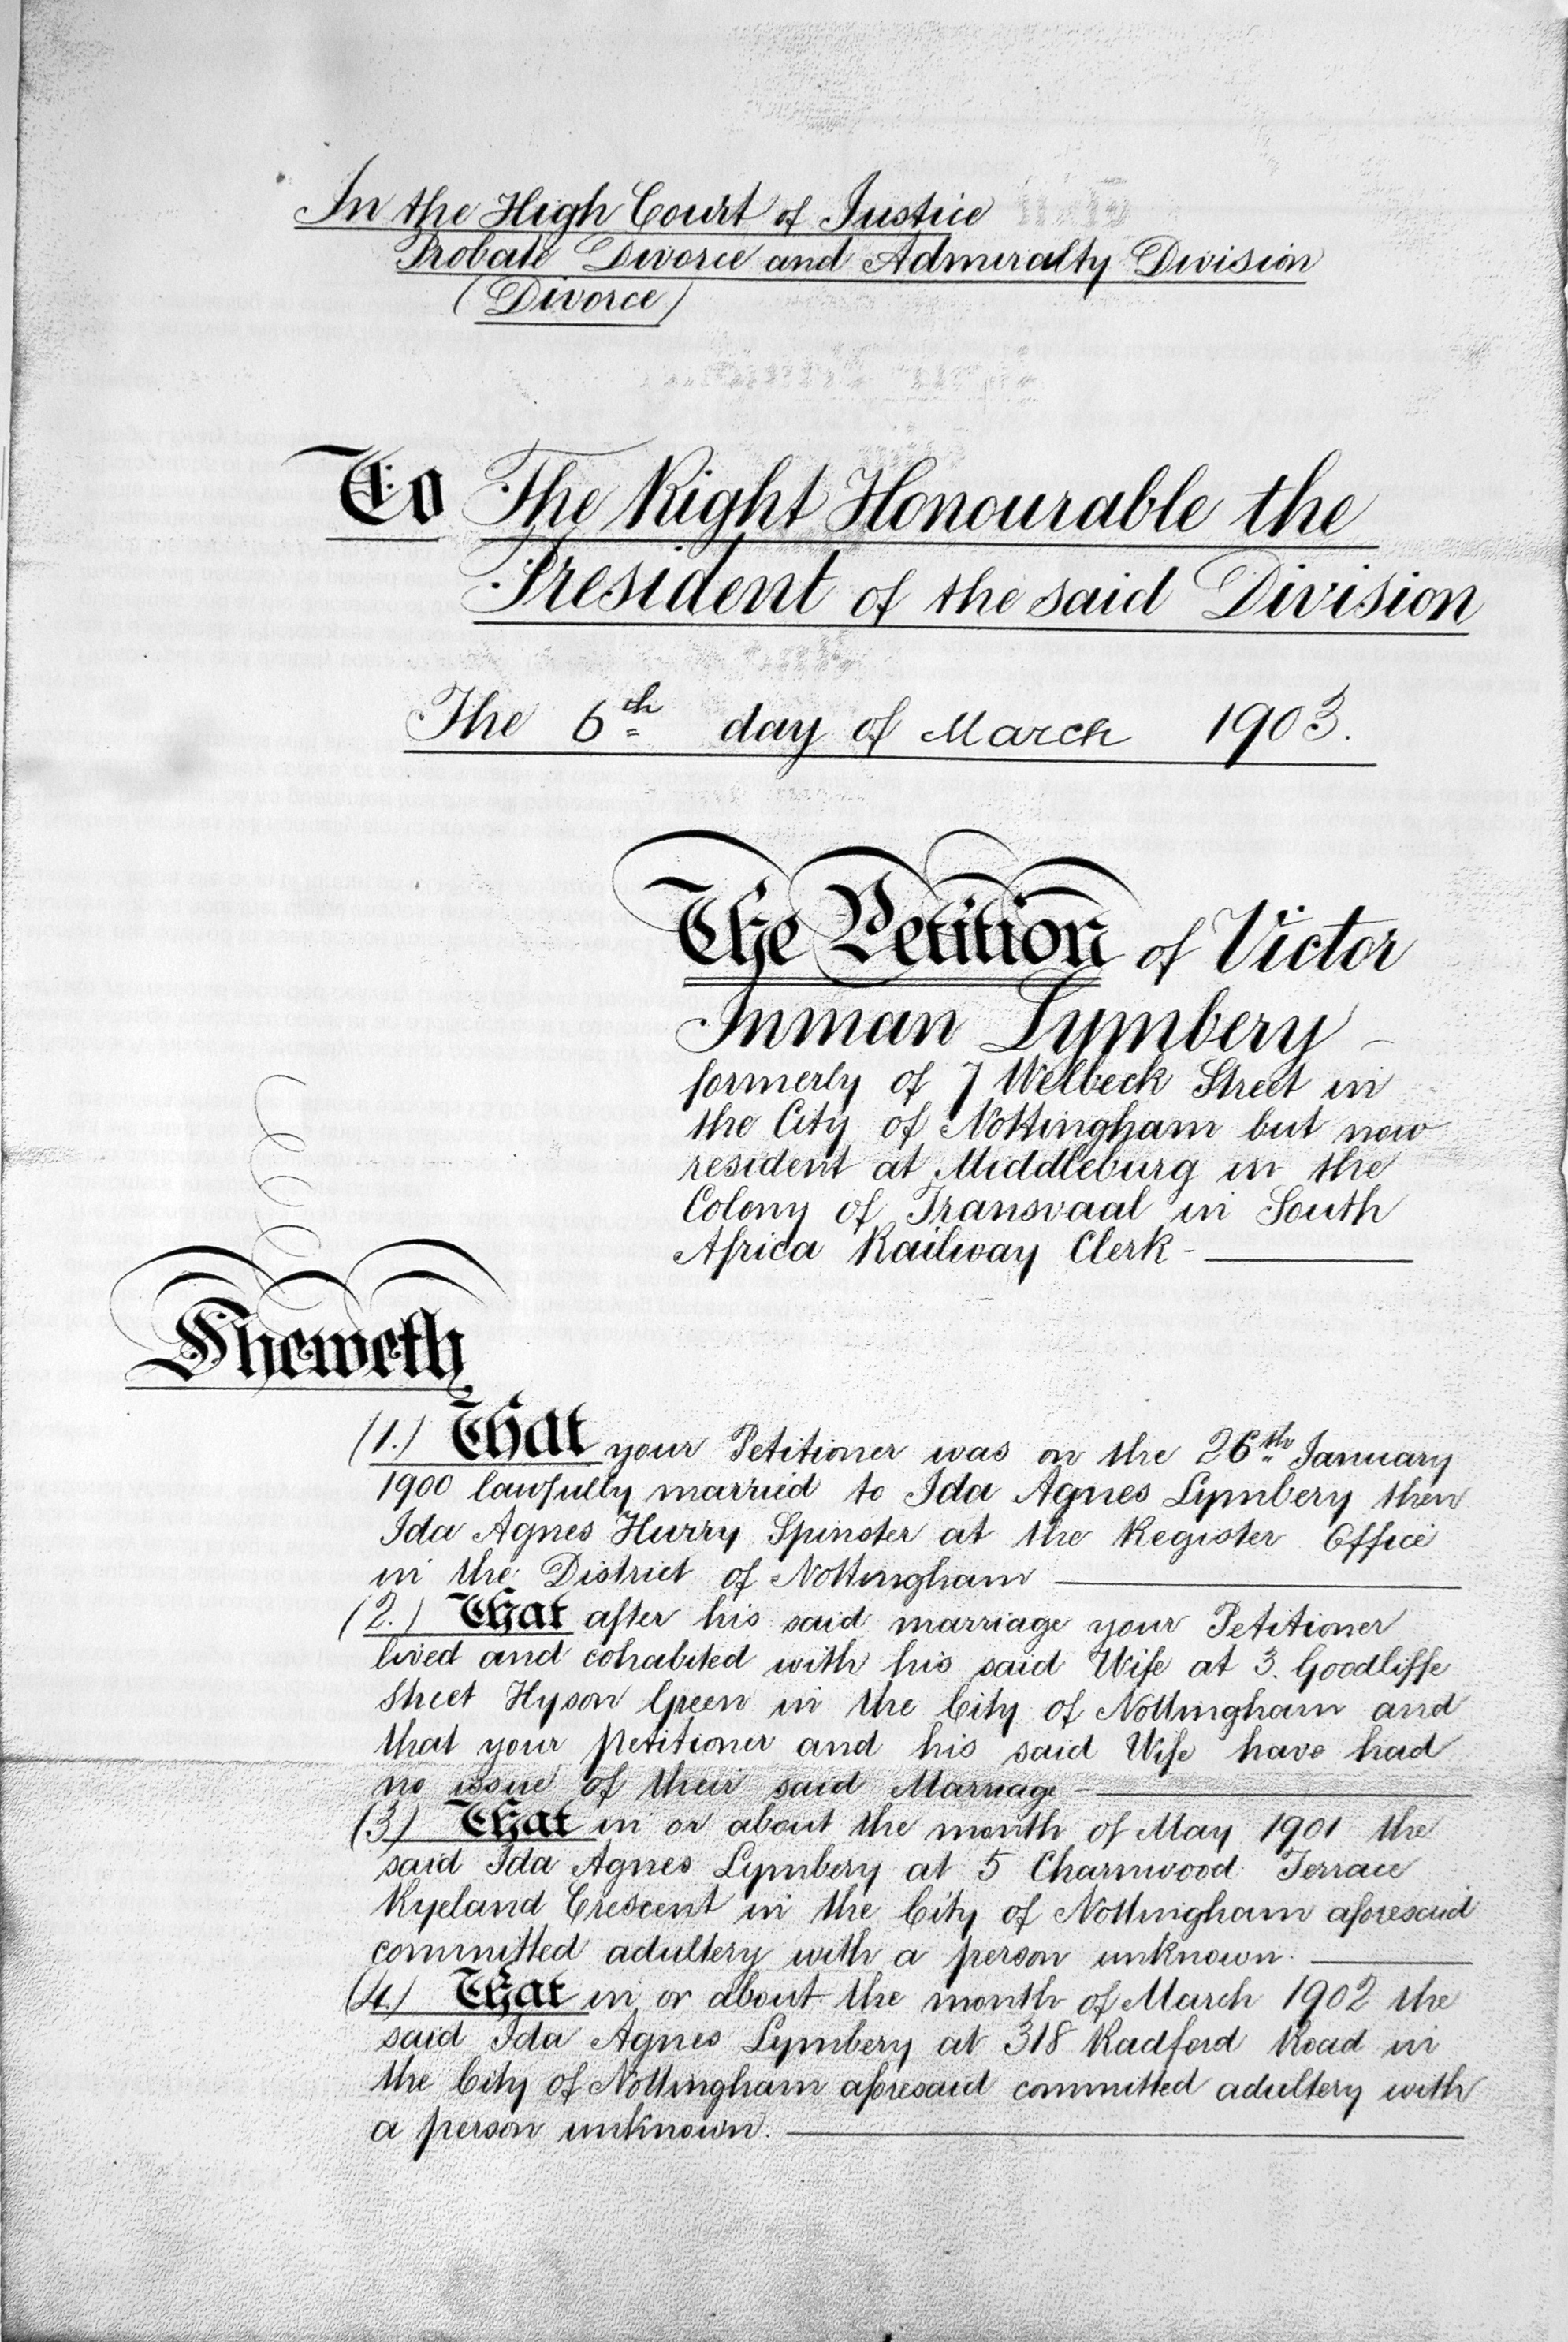 In the High Court of Justice
Probate Divorce and Admiralty Division
(Divorce)
To The Right Honourable the
President of the said Division
The 6th day of March 1903.
The Petition of Victor
Inman Lymbery
formerly of 7 Welbeck Street in
the City of Nottingham but now
resident at Middleburg in the
Colony of Transvaal in South
Africa Railway Clerk
Sheweth
(1.) That your Petitioner was on the 26th January
1900 lawfully married to Ida Agnes Lymbery then
Ida Agnes Hurry Spinster at the Register Office
in the District of Nottingham
(2.) That after his said marriage your Petitioner
lived and cohabited with his said Wife at 3. Goodliffe
Street Hyson Green in the City of Nottingham and
that your petitioner and his said Wife have had
no issue of their said Marriage
(3) That in or about the month of May 1901 the
said Ida Agnes Lymbery at 5 Charnwood Terrace
Ryeland Crescent in the City of Nottingham aforesaid
committed adultery with a person unknown.
(4.) That in or about the month of March 1902 the
said Ida Agnes Lymbery at 318 Radford Road in
the City of Nottingham aforesaid committed adultery with
a person unknown.